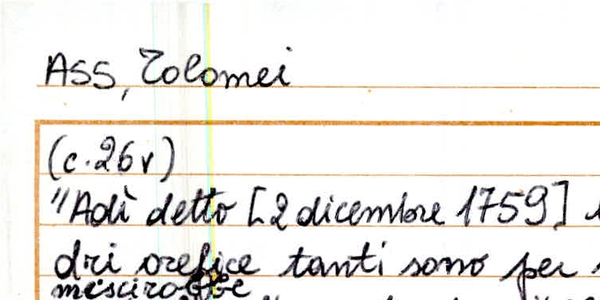 ASS, Tolomei
(c.26v)
"Adì detto [2 dicembre 1759]
dri orefice tanti sono per